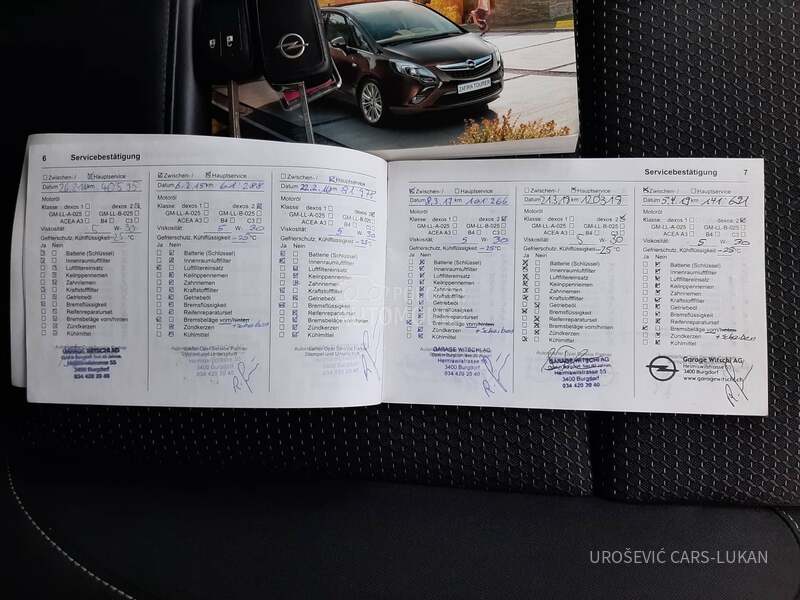 ZAFIRA TOURER
6 Servicebestätigung
Zwischen-/ Hauptservice
Datum 26.2.14 km 40535
Motoröl
Klasse: dexos 1 dexos 2
GM-LL-A-025 GM-LL-B-025
ACEA A3 B4 C3
Viskosität 5 W- 30
Gefrierschutz, Kühlflüssigkeit -25 °C
Ja Nein
Batterie (Schlüssel)
Innenraumluftfilter
Luftfiltereinsatz
Keilrippenriemen
Zahnriemen
Kraftstofffilter
Getriebeöl
Bremsflüssigkeit
Reifenreparaturset
Bremsbeläge vorn/hinten
Zündkerzen
Kühlmittel
GARAGE WITSCHI AG
Heimiswilstrasse 55
3400 Burgdorf
034 420 20 40
Zwischen-/ Hauptservice
Datum 6.2.15 km 61'288
Motoröl
Klasse: dexos 1 dexos 2
GM-LL-A-025 GM-LL-B-025
ACEA A3 B4 C3
Viskosität 5 W- 30
Gefrierschutz, Kühlflüssigkeit -25°C
Ja Nein
Batterie (Schlüssel)
Innenraumluftfilter
Luftfiltereinsatz
Keilrippenriemen
Zahnriemen
Kraftstofffilter
Getriebeöl
Bremsflüssigkeit
Reifenreparaturset
Bremsbeläge vorn/hinten
Zündkerzen
Kühlmittel
GARAGE WITSCHI AG
Heimiswilstrasse 55
3400 Burgdorf
034 420 20 40
Zwischen-/ Hauptservice
Motoröl
Klasse: dexos 1 dexos 2
GM-LL-A-025 GM-LL-B-025
ACEA A3 B4 C3
Viskosität 5 W 30
Gefrierschutz, Kühlflüssigkeit -25
Ja Nein
Batterie (Schlüssel)
Innenraumluftfilter
Luftfiltereinsatz
Keilrippenriemen
Zahnriemen
Kraftstofffilter
Getriebeöl
Bremsflüssigkeit
Reifenreparaturset
Bremsbeläge vorn/hinten
Zündkerzen
Kühlmittel
Servicebestätigung 7
Zwischen-/ Hauptservice
Datum 8.3.17 km 101 266
Motoröl
Klasse: dexos 1 dexos 2
GM-LL-A-025 GM-LL-B-025
ACEA A3 B4 C3
Viskosität 5 W- 30
Gefrierschutz, Kühlflüssigkeit -25°C
Ja Nein
Batterie (Schlüssel)
Innenraumluftfilter
Luftfiltereinsatz
Keilrippenriemen
Zahnriemen
Kraftstofffilter
Getriebeöl
Bremsflüssigkeit
Reifenreparaturset
Bremsbeläge vorn/hinten
Zündkerzen
Kühlmittel
GARAGE WITSCHI AG
Heimiswilstrasse 55
3400 Burgdorf
034 420 20 40
Zwischen-/ Hauptservice
Motoröl
Klasse: dexos 1 dexos 2
GM-LL-A-025 GM-LL-B-025
ACEA A3 B4 C3
Viskosität 5 W- 30
Gefrierschutz, Kühlflüssigkeit -25°C
Ja Nein
Batterie (Schlüssel)
Innenraumluftfilter
Luftfiltereinsatz
Keilrippenriemen
Zahnriemen
Kraftstofffilter
Getriebeöl
Bremsflüssigkeit
Reifenreparaturset
Bremsbeläge vorn/hinten
Zündkerzen
Kühlmittel
GARAGE WITSCHI AG
Heimiswilstrasse 55
3400 Burgdorf
034 420 20 40
Zwischen-/ Hauptservice
Datum 5.4.19 km 141 621
Motoröl
Klasse: dexos 1 dexos 2
GM-LL-A-025 GM-LL-B-025
ACEA A3 B4 C3
Viskosität 5 W- 30
Gefrierschutz, Kühlflüssigkeit -25°C
Ja Nein
Batterie (Schlüssel)
Innenraumluftfilter
Luftfiltereinsatz
Keilrippenriemen
Zahnriemen
Kraftstofffilter
Getriebeöl
Bremsflüssigkeit
Reifenreparaturset
Bremsbeläge vorn/hinten
Zündkerzen
Kühlmittel
Garage Witschi AG
Heimiswilstrasse
3400 Burgdorf
www.garagewitschi.ch
UROŠEVIĆ CARS-LUKAN